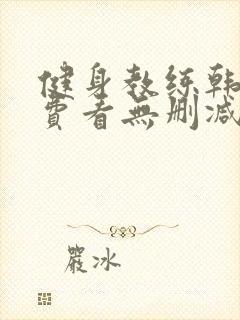 健身教练韩
费看無删减
嚴冰